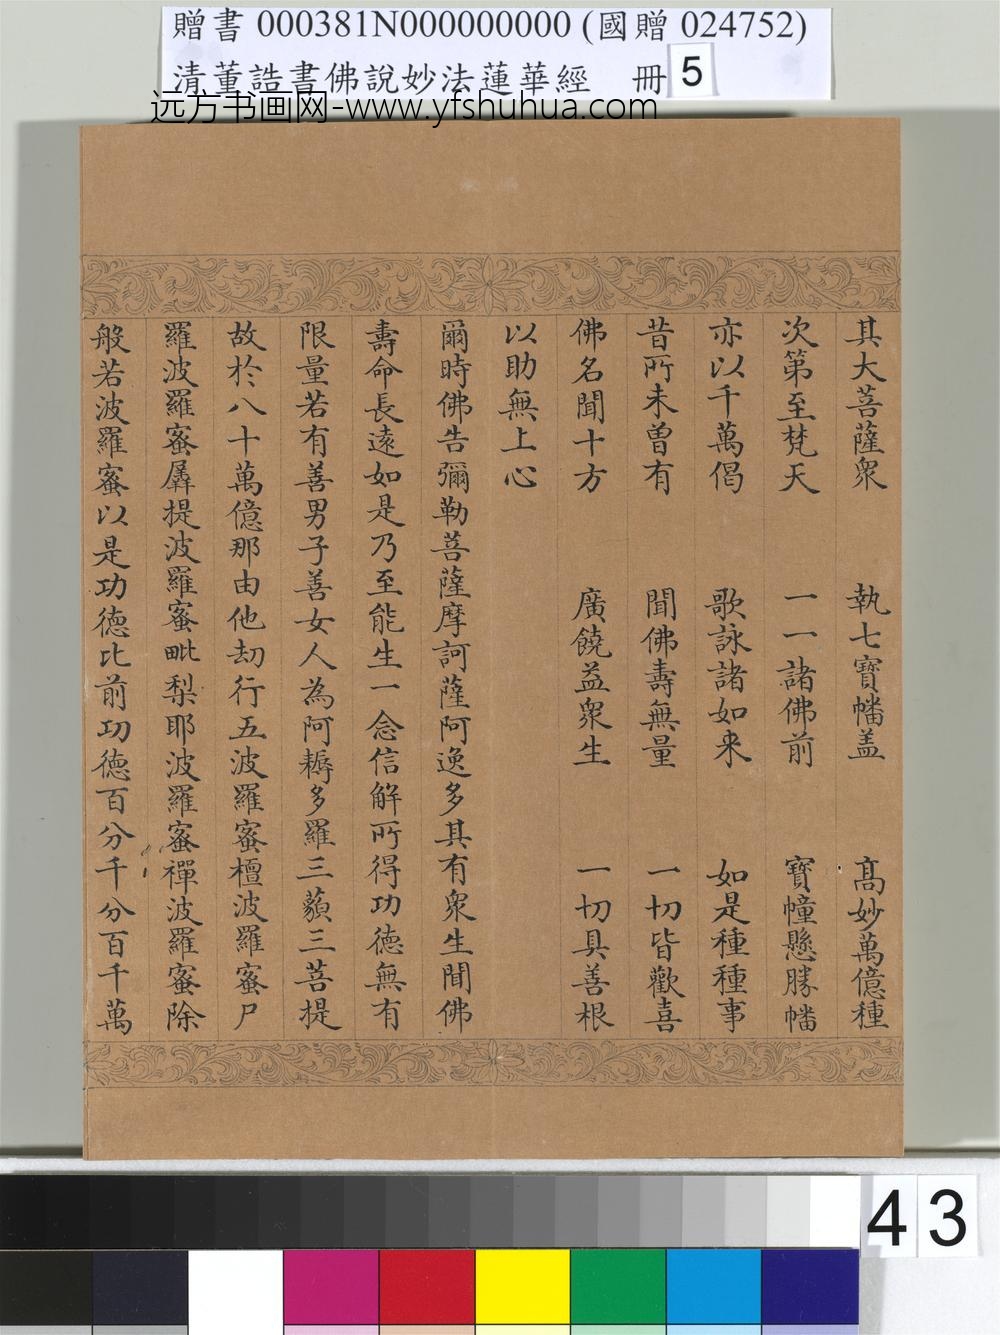 贈書 000381N000000000 (國贈 024752)
清董誥書佛說妙法蓮華經 冊 5
远方书画网-www.yfshuhua.com
其大菩薩衆 執七寶幡盖 髙妙萬億種
次第至梵天 一一諸佛前 寶幢懸勝幡
亦以千萬偈 歌詠諸如来 如是種種事
昔所未曽有 聞佛壽無量 一切皆歡喜
佛名聞十方 廣饒益衆生 一切具善根
以助無上心
爾時佛告彌勒菩薩摩訶薩阿逸多其有衆生聞佛
壽命長遠如是乃至能生一念信解所得功德無有
限量若有善男子善女人為阿耨多羅三藐三菩提
故於八十萬億那由他劫行五波羅蜜檀波羅蜜尸
羅波羅蜜羼提波羅蜜毗梨耶波羅蜜禪波羅蜜除
般若波羅蜜以是功德比前功德百分千分百千萬
43